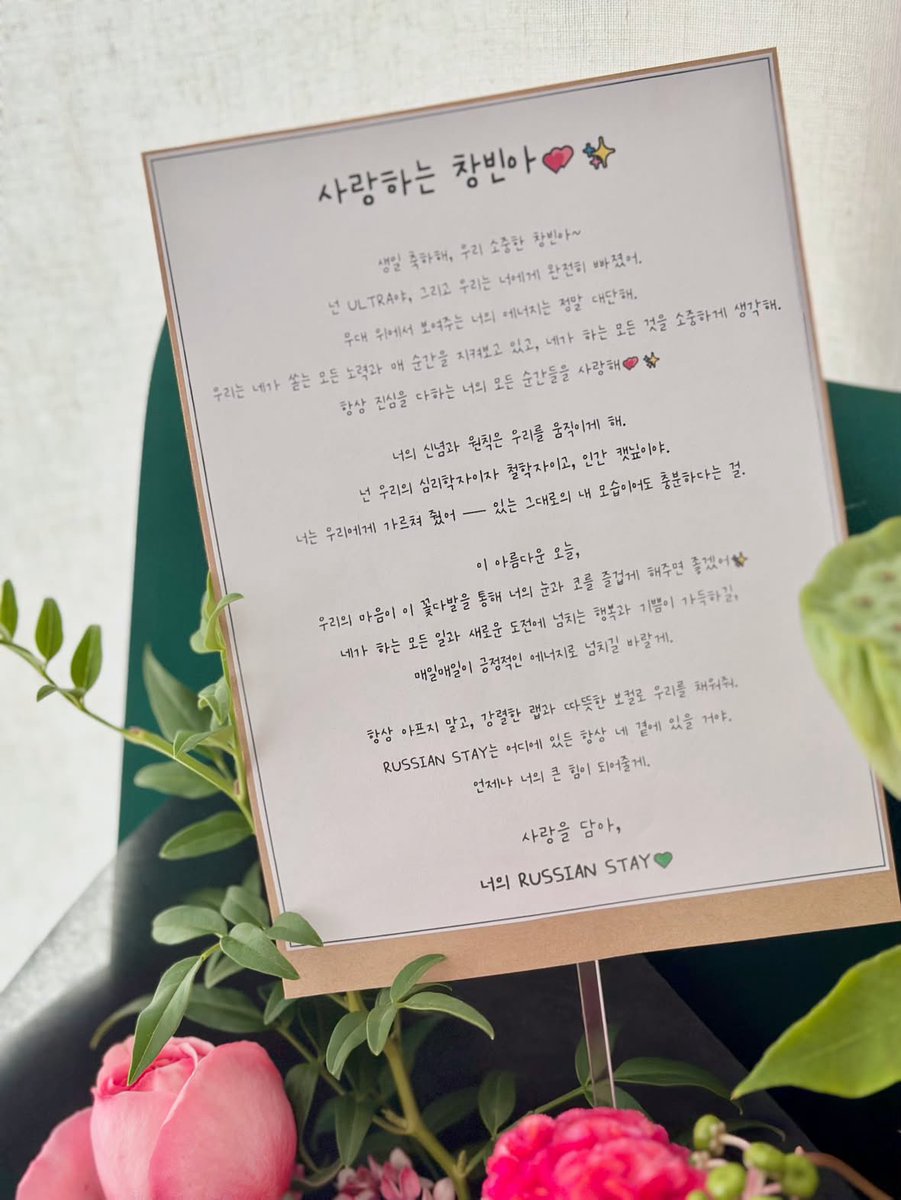 사랑하는 창빈아💕✨
생일 축하해, 우리 소중한 창빈아~
넌 ULTRA야, 그리고 우리는 너에게 완전히 빠졌어.
무대 위에서 보여주는 너의 에너지는 정말 대단해.
우리는 네가 쏟는 모든 노력과 매 순간을 지켜보고 있고, 네가 하는 모든 것을 소중하게 생각해.
항상 진심을 다하는 너의 모든 순간들을 사랑해💕✨
너의 신념과 원칙은 우리를 움직이게 해.
넌 우리의 심리학자이자 철학자이고, 인간 캣닢이야.
너는 우리에게 가르쳐 줬어 — 있는 그대로의 내 모습이어도 충분하다는 걸.
이 아름다운 오늘,
우리의 마음이 이 꽃다발을 통해 너의 눈과 코를 즐겁게 해주면 좋겠어✨
네가 하는 모든 일과 새로운 도전에 넘치는 행복과 기쁨이 가득하길,
매일매일이 긍정적인 에너지로 넘치길 바랄게.
항상 아프지 말고, 강렬한 랩과 따뜻한 보컬로 우리를 채워줘.
RUSSIAN STAY는 어디에 있든 항상 네 곁에 있을 거야.
언제나 너의 큰 힘이 되어줄게.
사랑을 담아,
너의 RUSSIAN STAY💚